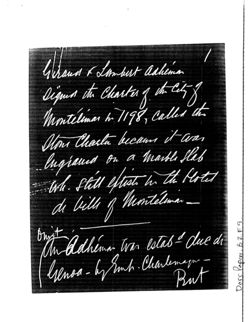 1
Giraud & Lambert Adhémar
Signed the Charter of the City of
Montélimar in 1198, called the
Stone Charter because it was
Engraved on a Marble Slab
wh. still exists in the Hotel
de Ville of Montelimar —
Omit
An Adhémar was estabd Duc de
Genoa - by Emp. Charlemagne —